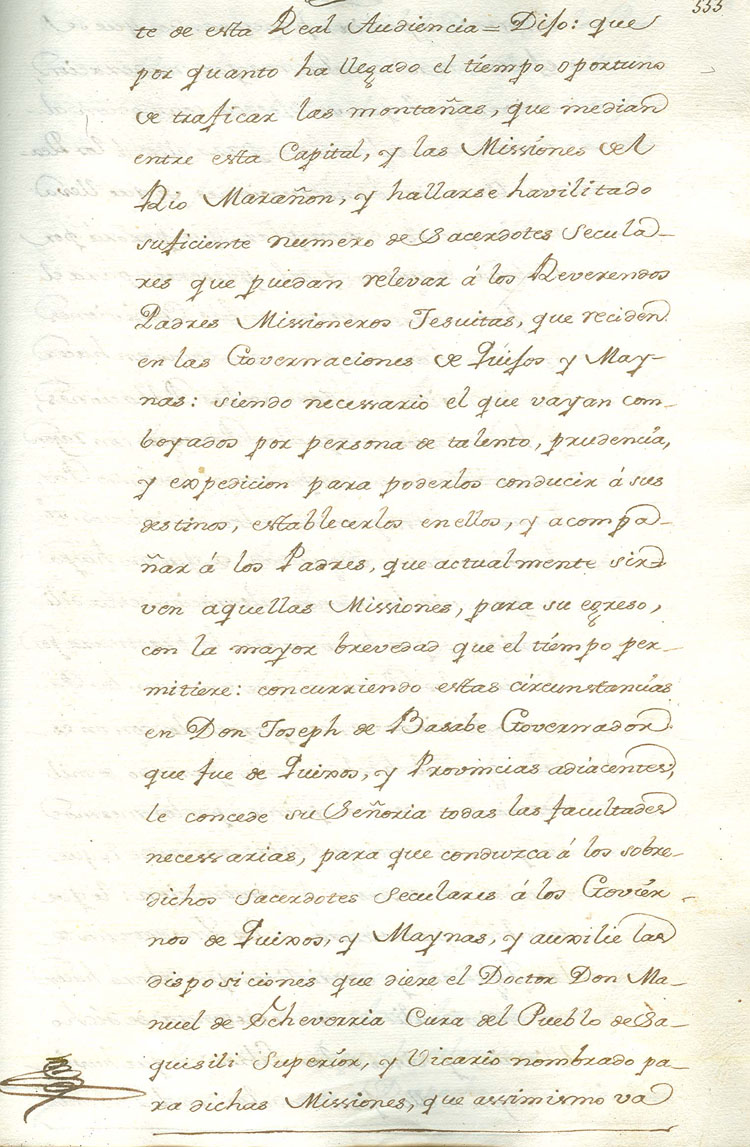 555
te de esta Real Audiencia = Dijo: que
por quanto ha llegado el tiempo oportuno
de traficar las montañas, que median
entre esta Capital, y las Missiones del
Rio Marañon, y hallarse havilitado
suficiente numero de Sacerdotes Secula-
res que puedan relevar á los Reverendos
Padres Missioneros Jesuitas, que reciden
en las Governaciones de Quijos y May-
nas: siendo necessario el que vayan com-
boyados por persona de talento, prudencia,
y expedicion para poderlos conducir á sus
destinos, establecerlos en ellos, y acompa-
ñar á los Padres, que actualmente sir-
ven aquellas Missiones, para su egreso,
con la mayor brevedad que el tiempo per-
mitiere: concurriendo estas circunstancias
en Don Joseph de Basabe Governador
que fue de Quixos, y Provincias adiacentes,
le concede su Señoria todas las facultades
necessarias, para que conduzca á los sobre-
dichos Sacerdotes Seculares á los Govier-
nos de Quixos, y Maynas, y auxilie las
disposiciones que diere el Doctor Don Ma-
nuel de Echeverria Cura del Pueblo de Sa-
quisili Superior, y Vicario nombrado pa-
ra dichas Missiones, que assimismo va